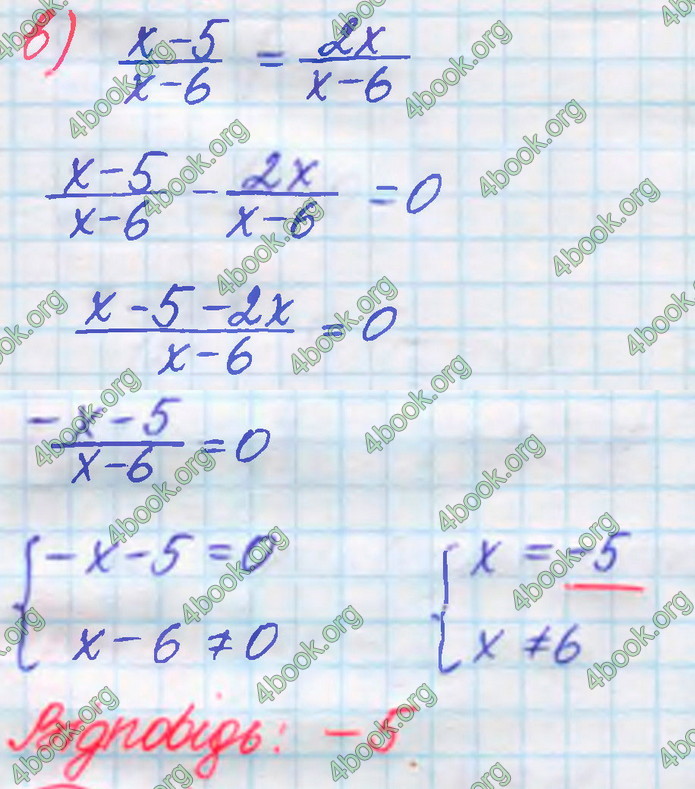 в) (x-5)/(x-6) = 2x/(x-6)
(x-5)/(x-6) - 2x/(x-6) = 0
(x-5-2x)/(x-6) = 0
(-x-5)/(x-6) = 0
{ -x-5=0 { x=-5
x-6≠0 x≠6
Відповідь: -5
4book.org